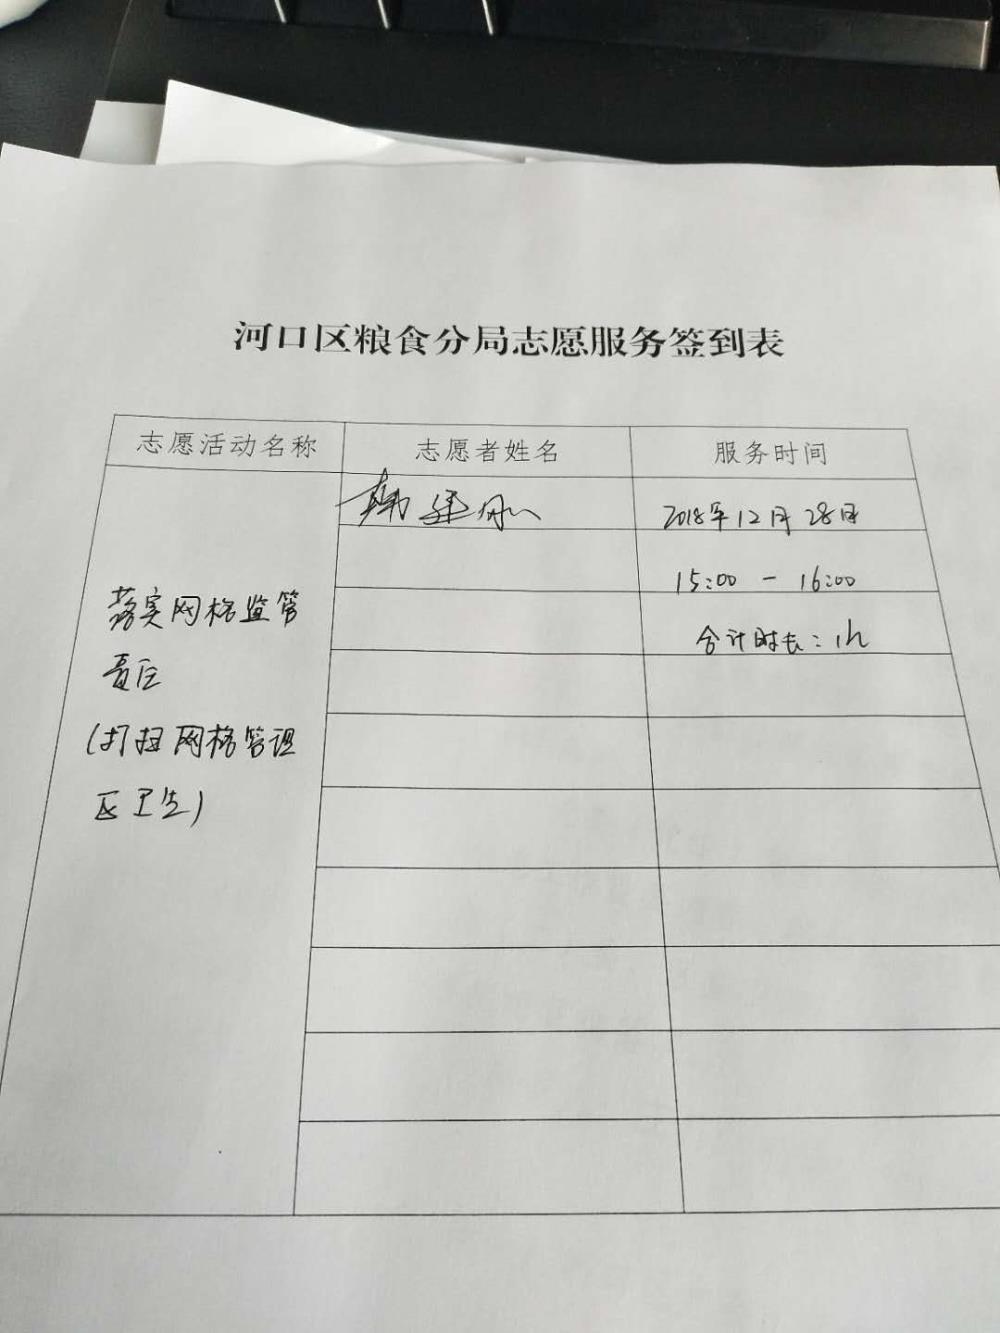 河口区粮食分局志愿服务签到表
志愿活动名称 志愿者姓名 服务时间
韩建 2018年12月28日
15:00 - 16:00
合计时长：1h
落实网格监管
责任
(打扫网格管理
区卫生)